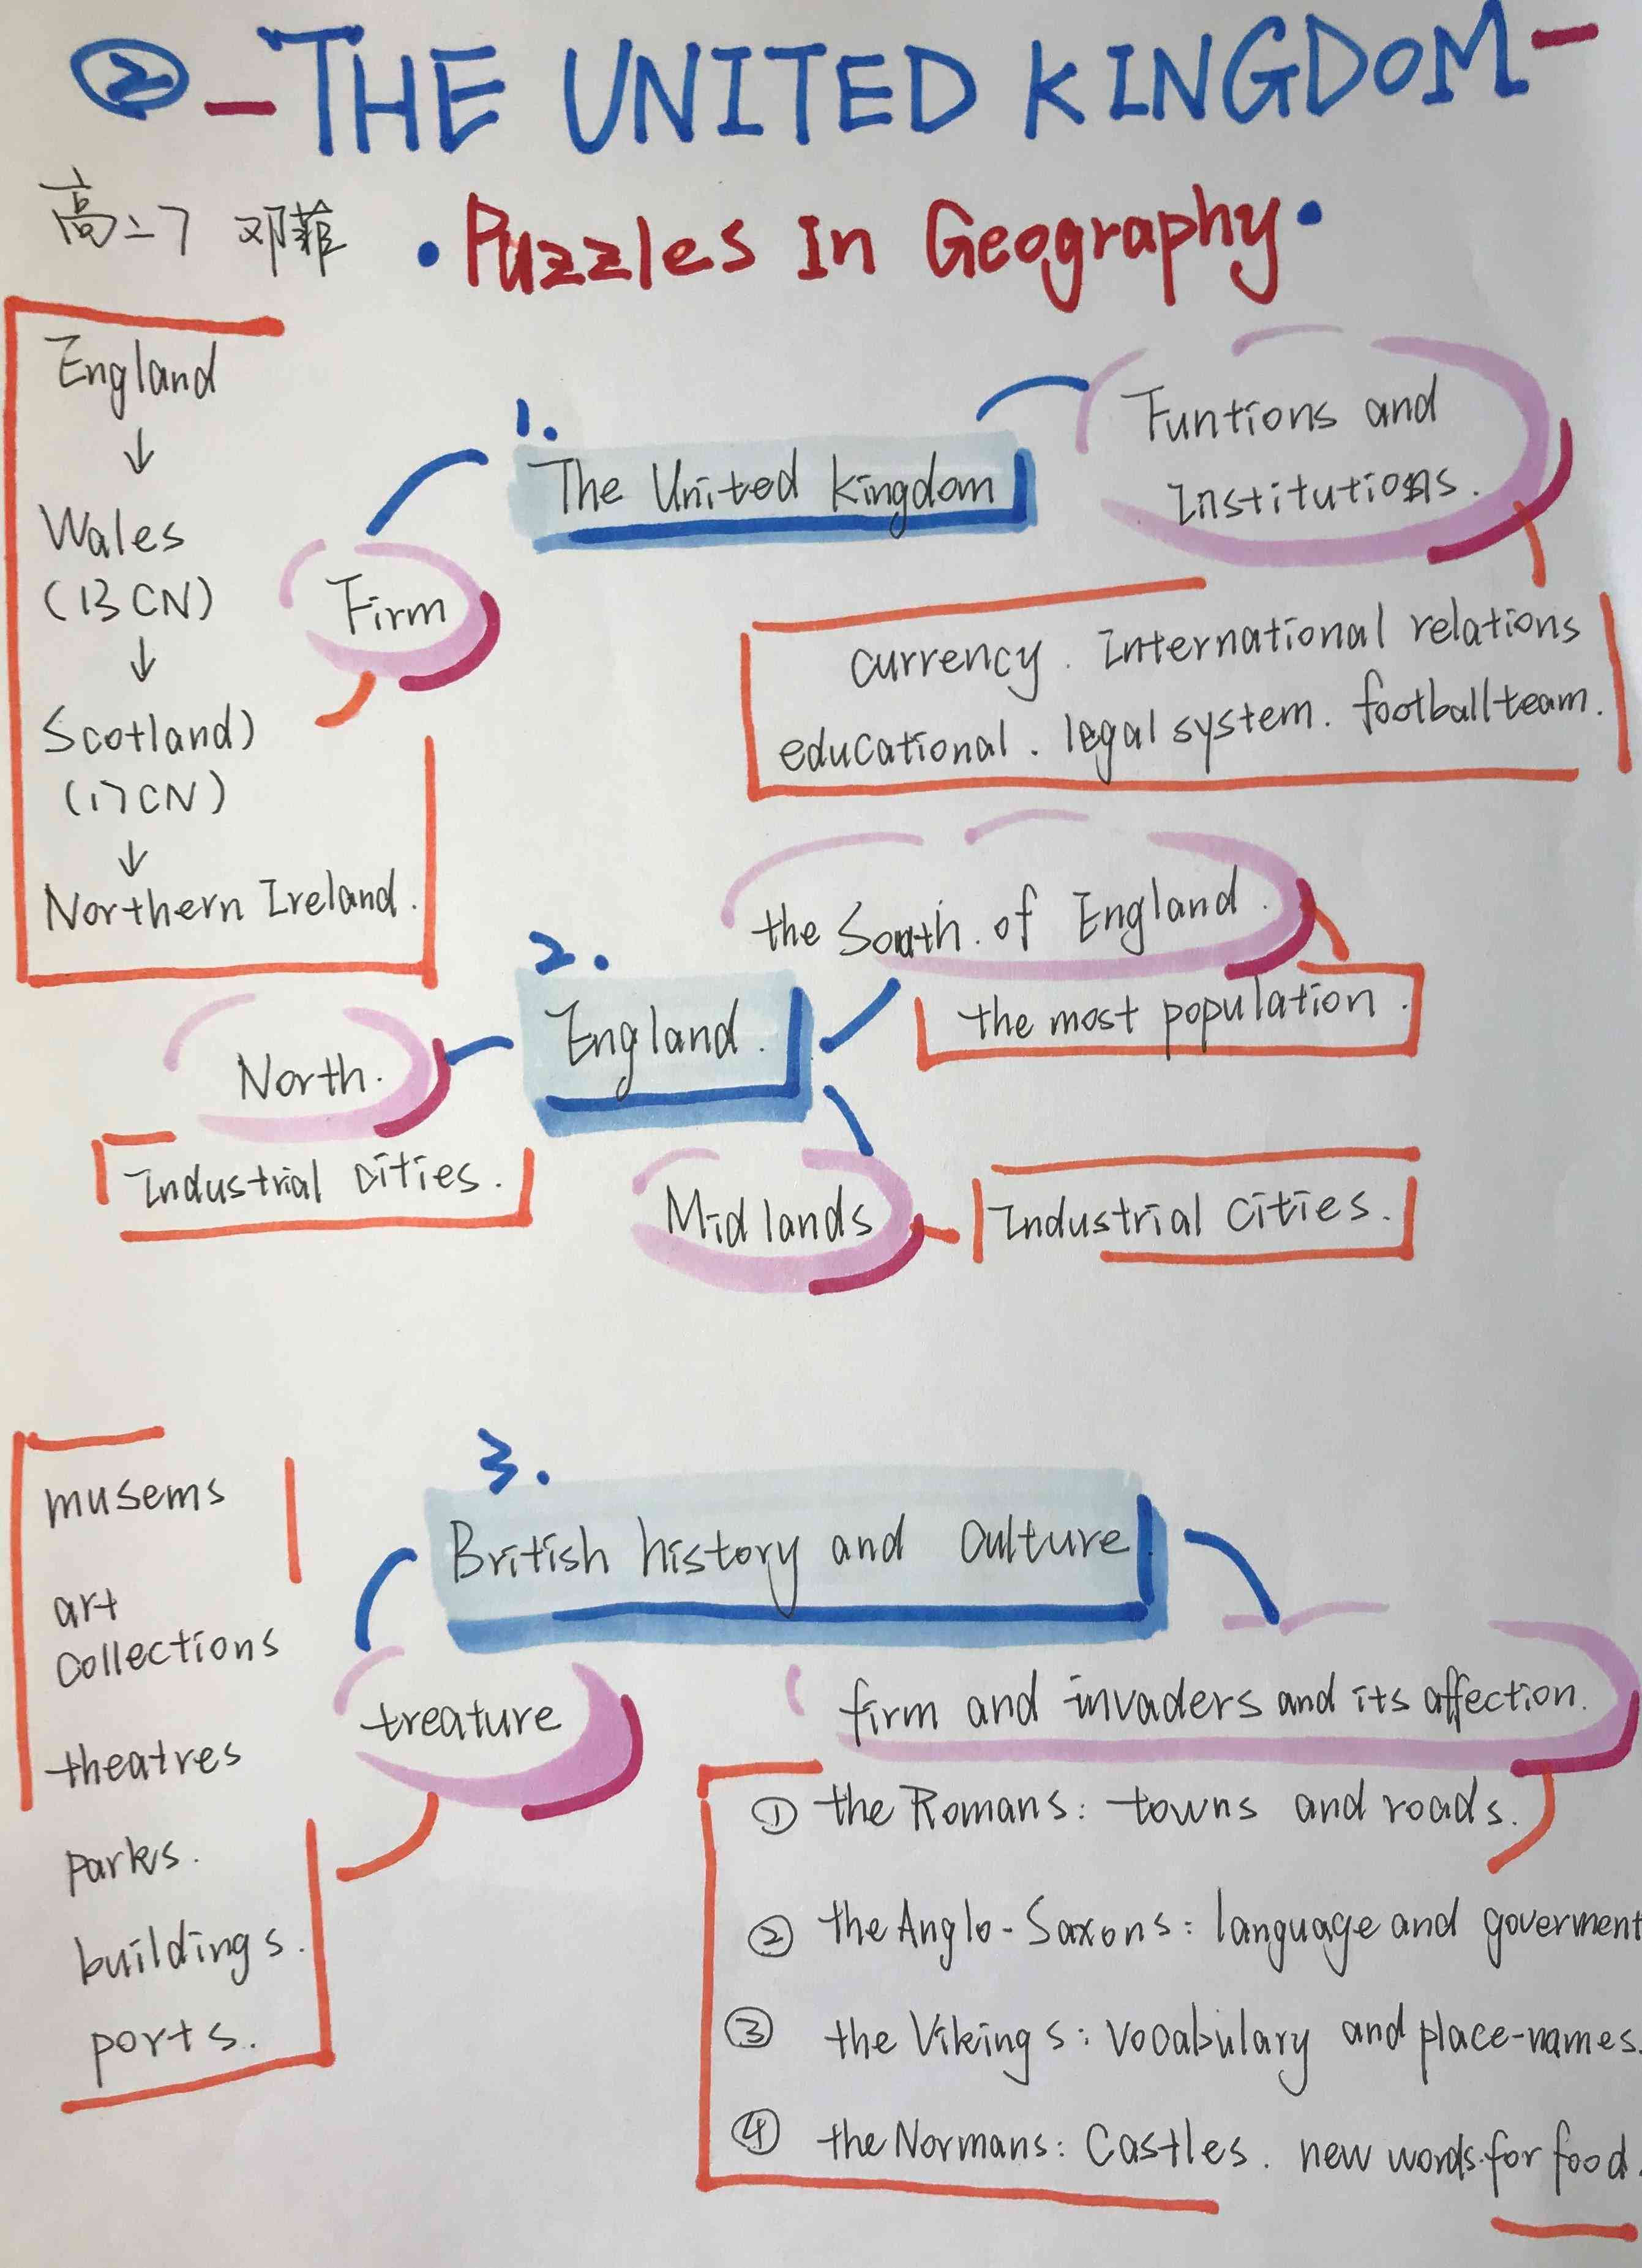 ② -THE UNITED KINGDOM-
高二7 邓菲
·Puzzles In Geography·
1.
The United kingdom
Firm
England
↓
Wales
(13 CN)
↓
Scotland)
(17 CN)
↓
Northern Ireland.
Funtions and
Institutions.
currency. International relations
educational. legal system. football team.
2.
England.
the South of England.
the most population.
North.
Industrial cities.
Midlands
Industrial cities.
3.
British history and culture
treature
musems
art
collections
theatres
parks.
buildings.
ports.
firm and invaders and its affection.
① the Romans: towns and roads.
② the Anglo-Saxons: language and goverment
③ the Vikings: vocabulary and place-names.
④ the Normans: Castles. new words for food.